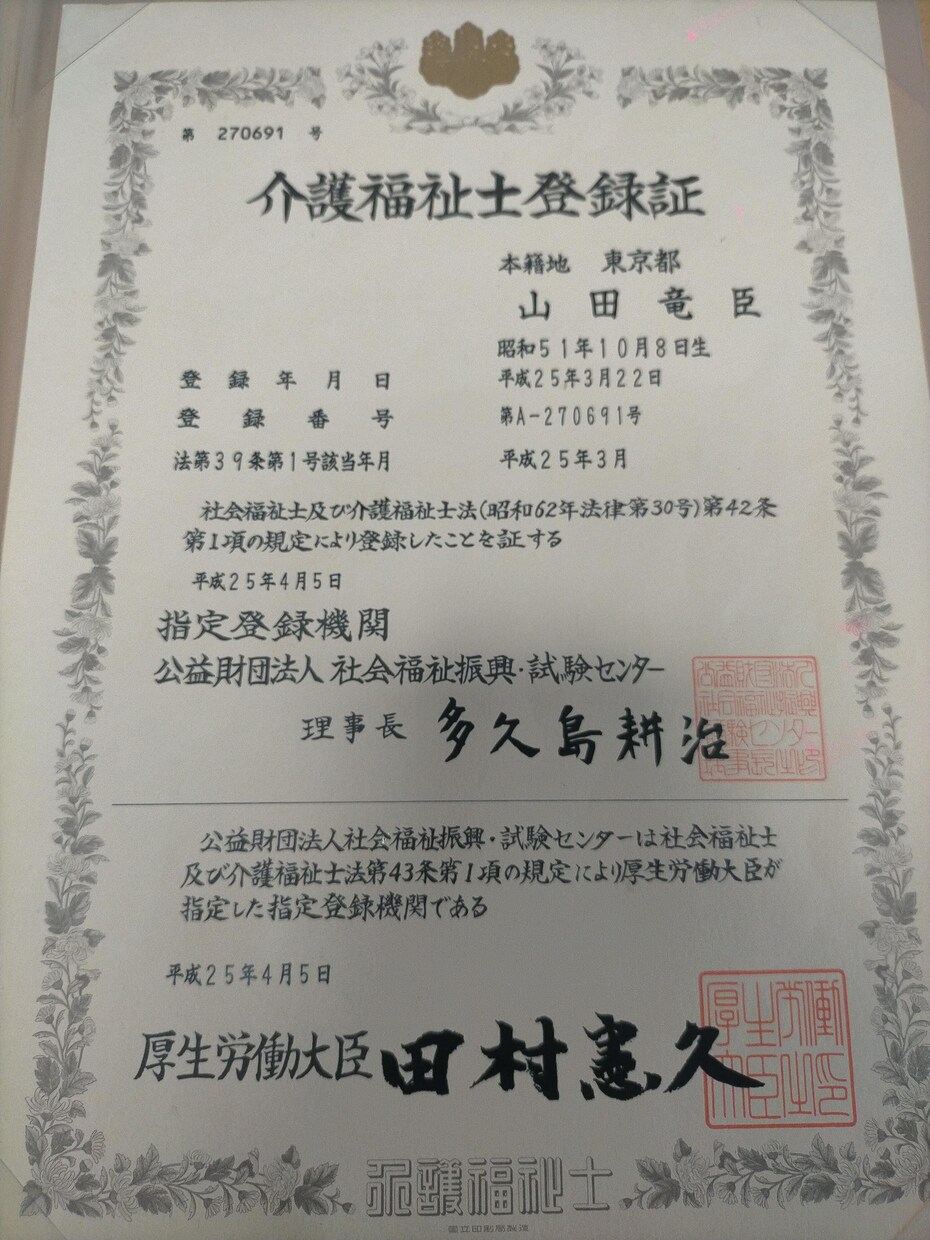 第 270691 号
介護福祉士登録証
本籍地 東京都
山田竜臣
昭和51年10月8日生
登録年月日 平成25年3月22日
登録番号 第A-270691号
法第39条第1号該当年月 平成25年3月
社会福祉士及び介護福祉士法(昭和62年法律第30号)第42条
第1項の規定により登録したことを証する
平成25年4月5日
指定登録機関
公益財団法人 社会福祉振興・試験センター
理事長 多久島耕治
公益財団法人社会福祉振興・試験センターは社会福祉士
及び介護福祉士法第43条第1項の規定により厚生労働大臣が
指定した指定登録機関である
平成25年4月5日
厚生労働大臣 田村憲久
厚生労働
大臣之印
介護福祉士
国立印刷局製造